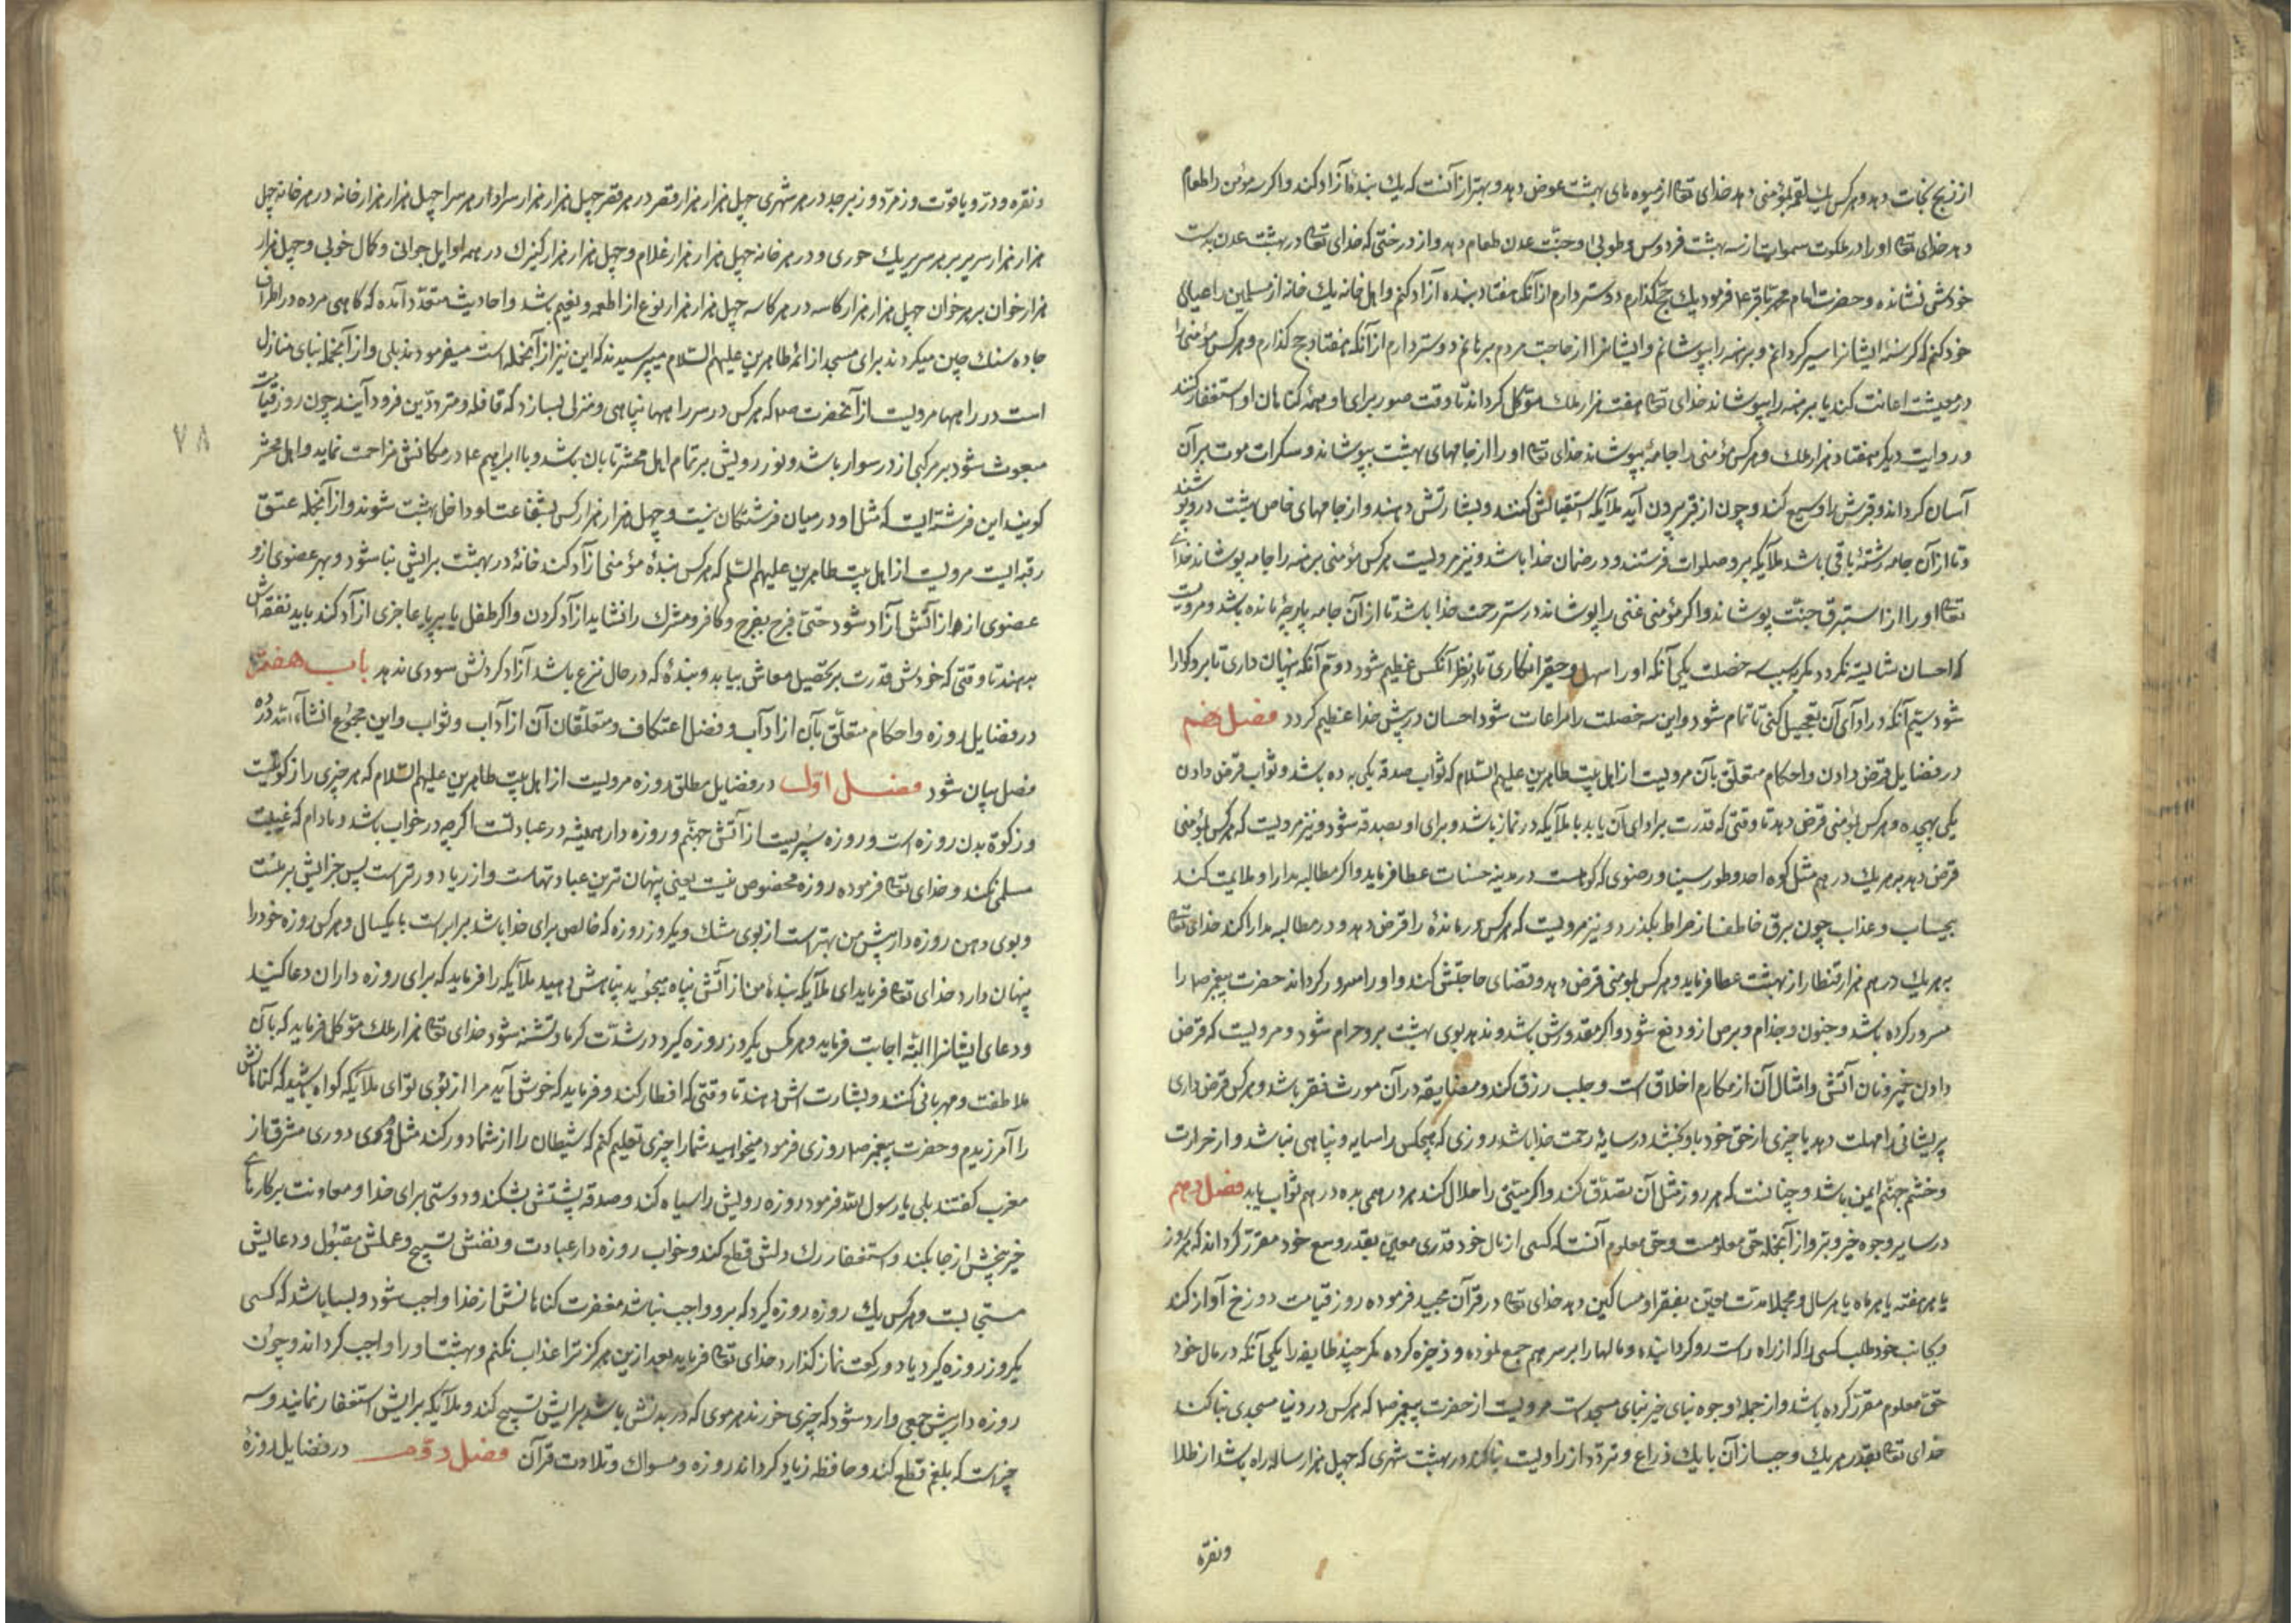 از فزع نجات دهد و هر کس یک لقمه بمؤمنی دهد خدای تعه از میوه های بهشت عوض دهد و بهتر از آنست که یک بنده آزاد کند و اگر سه مؤمن را طعام
دهد خدای تعه او را در ملکوت سموات از سه بهشت فردوس و طوبی و جنّت عدن طعام دهد و از درختی که خدای تعه در بهشت عدن بدست
خودش نشانده و حضرت امام محمد باقر ع فرمود یک حج گذارم دوستر دارم از آنکه هفتاد بنده آزاد کنم و اهل خانه یک خانه از مسلمین را عیال
خود کنم که گرسنه ایشانرا سیر گردانم و برهنه را بپوشانم و ایشانرا از حاجت مردم برهانم دوستر دارم از آنکه هفتاد حج گذارم و هر کس مؤمنی را
در معیشت اعانت کند یا برهنه را بپوشاند خدای تعه هفت هزار ملک موکّل گرداند تا وقت صور برای او همه گناهان او استغفار کنند
و روایت دیگر هفتاد هزار ملک و هر کس مؤمنی را جامه بپوشاند خدای تعه او را از جامهای بهشت بپوشاند و سکرات موت بر آن
آسان گرداند و قبرش را وسیع کند و چون از قبر بیرون آید ملایکه استقبالش کنند و بشارتش دهند و از جامهای خاص بهشت درو پوشند
و تا از آن جامه رشتهٔ باقی باشد ملایکه برو صلوات فرستند و در ضمان خدا باشد و نیز مرویست هر کس مؤمنی برهنه را جامه پوشاند خدای
تعه او را از استبرق جنّت پوشاند و اگر مؤمنی غنی را پوشاند در ستر رحمت خدا باشد تا از آن جامه پارچهٔ مانده باشد و مرویست
که احسان شایسته نگردد مگر بسبب سه خصلت یکی آنکه او را سهل و حقیر انگاری تا در نظر آنکس عظیم شود دوّم آنکه پنهان داری تا برو گوارا
شود سیّم آنکه در ادای آن تعجیل کنی تا تمام شود و این سه خصلت را مراعات شود احسان در پیش خدا عظیم گردد فصل نهم
در فضایل قرض دادن و احکام متعلق بآن مرویست از اهل بیت طاهرین علیهم السلام که ثواب صدقه یکی به ده باشد و ثواب قرض دادن
یکی بهیجده و هر کس بمؤمنی قرض دهد تا وقتی که قدرت بر ادای آن یابد با ملایکه در نماز باشد و برای او بصدقه شود و نیز مرویست که هر کس بمؤمنی
قرض دهد بهر یک درهم مثل کوه احد و طور سینا و رضوی که کوهست در مدینه حسنات عطا فرماید و اگر مطالبه بمدارا و ملایمت کند
بیحساب و عذاب چون برق خاطف از صراط بگذرد و نیز مرویست که هر کس درماندهٔ را قرض دهد و در مطالبه مدارا کند خدای تعه
بهر یک درهم هزار قنطار از بهشت عطا فرماید و هر کس بمؤمنی قرض دهد و قضای حاجتش کند و او را مسرور گرداند حضرت پیغمبر ص را
مسرور کرده باشد و جنون و جذام و برص ازو دفع شود و اگر مقدورش باشد و ندهد بوی بهشت برو حرام شود و مرویست که قرض
دادن خمیر و نان آتش و امثال آن از مکارم اخلاق است و جلب رزق کند و مضایقه در آن مورث فقر باشد و هر کس قرض داری
پریشانی را مهلت دهد یا چیزی از حق خود باو بخشد در سایهٔ رحمت خدا باشد روزی که هیچکس را سایه و پناهی نباشد و از حرارت
و خشم جهنم ایمن باشد و چنانست که هر روز مثل آن تصدّق کند و اگر میّتی را حلال کند هر درهمی بده درهم ثواب یابد فصل دهم
در سایر وجوه خیر و بر و از آنجمله حق معلومست و حق معلوم آنست که کسی از مال خود قدری معیّن بقدر وسع خود مقرّر گرداند که هر روز
یا هر هفته یا هر ماه یا هر سال و مجملا مدت معیّن بفقرا و مساکین دهد خدای تعه در قرآن مجید فرموده روز قیامت دوزخ آواز کند
و بجانب خود طلب کسی را که از راه راست رو گردانیده و مالها را بر سر هم جمع نموده و ذخیره کرده مگر چند طایفه را یکی آنکه در مال خود
حق معلوم مقرّر کرده باشد و از جملهٔ وجوه بنای خیر بنای مسجد است مرویست از حضرت پیغمبر ص که هر کس در دنیا مسجدی بنا کند
خدای تعه بقدر هر یک وجب از آن یا یک ذراع و تردّد از راویست بنا کند در بهشت شهری که چهل هزار ساله راه باشد از طلا
و نقره
و نقره و درّ و یاقوت و زمرّد و زبرجد در هر شهری چهل هزار هزار قصر در هر قصر چهل هزار هزار سرا و در هر سرا چهل هزار هزار خانه در هر خانه چهل
هزار هزار سریر بر هر سریر یک حوری و در هر خانه چهل هزار هزار غلام و چهل هزار هزار کنیزک در همه اوایل جوانی و کمال خوبی و چهل هزار
هزار خوان بر هر خوان چهل هزار هزار کاسه در هر کاسه چهل هزار هزار نوع از اطعمه و نعیم باشد و احادیث متعدد آمده که گاهی مرده در اطراف
جاده سنگ چین میکردند برای مسجد از ائمهٔ طاهرین علیهم السلام میپرسیدند که این نیز از آنجمله است میفرمودند بلی و از آنجمله بنای منازل
است در راهها مرویست از آنحضرت ص که هر کس در سر راهها پناهی و منزلی بسازد که قافله و متردّدین فرود آیند چون روز قیامت
مبعوث شود بر مرکبی از در سوار باشد و نور رویش بر تمام اهل محشر تابان باشد و با ابراهیم ع در مکانش مزاحمت نماید و اهل محشر
گویند این فرشته ایست که مثل او در میان فرشتگان نیست و چهل هزار هزار کس بشفاعت او داخل بهشت شوند و از آنجمله عتق
رقبه ایست مرویست از اهل بیت طاهرین علیهم السلم که هر کس بندهٔ مؤمنی آزاد کند خانهٔ در بهشت برایش بنا شود و بهر عضوی ازو
عضوی ازو از آتش آزاد شود حتی فرج بفرج و کافر و مشرک را نشاید آزاد کردن و اگر طفل یا پیر یا عاجزی آزاد کند باید نفقه اش
بدهند تا وقتی که خودش قدرت بر تحصیل معاش بیابد و بندهٔ که در حال نزع باشد آزاد کردنش سودی ندهد باب هفتم
در فضایل روزه و احکام متعلق بآن از آداب و فضل اعتکاف و متعلّقان آن از آداب و ثواب و این مجموع انشاء الله در
فصل بیان شود فصل اول در فضایل مطلق روزه مرویست از اهل بیت طاهرین علیهم السلام که هر چیزی را زکوتیست
و زکوة بدن روزه است و روزه سپریست از آتش جهنم و روزه دار همیشه در عبادتست اگر چه در خواب باشد و مادام که غیبت
مسلمی نکند و خدای تعه فرموده روزه مخصوص منست یعنی پنهان ترین عبادتهاست و از ریا دورتر است پس جزایش بر منست
و بوی دهن روزه دار پیش من بهتر است از بوی مشک و یکروز روزه که خالص برای خدا باشد برابر است با یکسال و هر کس روزه خود را
پنهان دارد خدای تعه فرماید ای ملایکه بندهٔ من از آتش پناه میجوید پناهش دهید ملایکه را فرماید که برای روزه داران دعا کنید
و دعای ایشانرا البته اجابت فرماید و هر کس یکروز روزه گیرد در شدّت گرما و تشنه شود خدای تعه هزار ملک موکل فرماید که بآن
ملاطفت و مهربانی کنند و بشارت اش دهند تا وقتی که افطار کند و فرماید که خوش آید مرا از بوی تو ای ملایکه گواه باشید که گناهانش
را آمرزیدم و حضرت پیغمبر ص روزی فرمود میخواهید شما را چیزی تعلیم کنم که شیطان را از شما دور کند مثل دوری مشرق از
مغرب گفتند بلی یا رسول الله فرمود روزه رویش را سیاه کند و صدقه پشتش بشکند و دوستی برای خدا و معاونت بر کارهای
خیر بیخش از جا بکند و استغفار رگ دلش قطع کند و خواب روزه دار عبادت و نفسش تسبیح و عملش مقبول و دعایش
مستجابست و هر کس یک روزه روزه گیرد که برو واجب نباشد مغفرت گناهانش از خدا واجب شود و بسا باشد که کسی
یکروز روزه گیرد یا دو رکعت نماز گذارد خدای تعه فرماید بعد ازین هرگز ترا عذاب نکنم و بهشت او را واجب گرداند و چون
روزه دار پیش جمعی وارد شود که چیزی خورند هر موی که در بدنش باشد برایش تسبیح کند و ملایکه برایش استغفار نمایند و سه
چیز است که بلغم قطع کند و حافظه زیاد گرداند روزه و مسواک و تلاوت قرآن فصل دوم در فضایل روزهٔ
۷۸